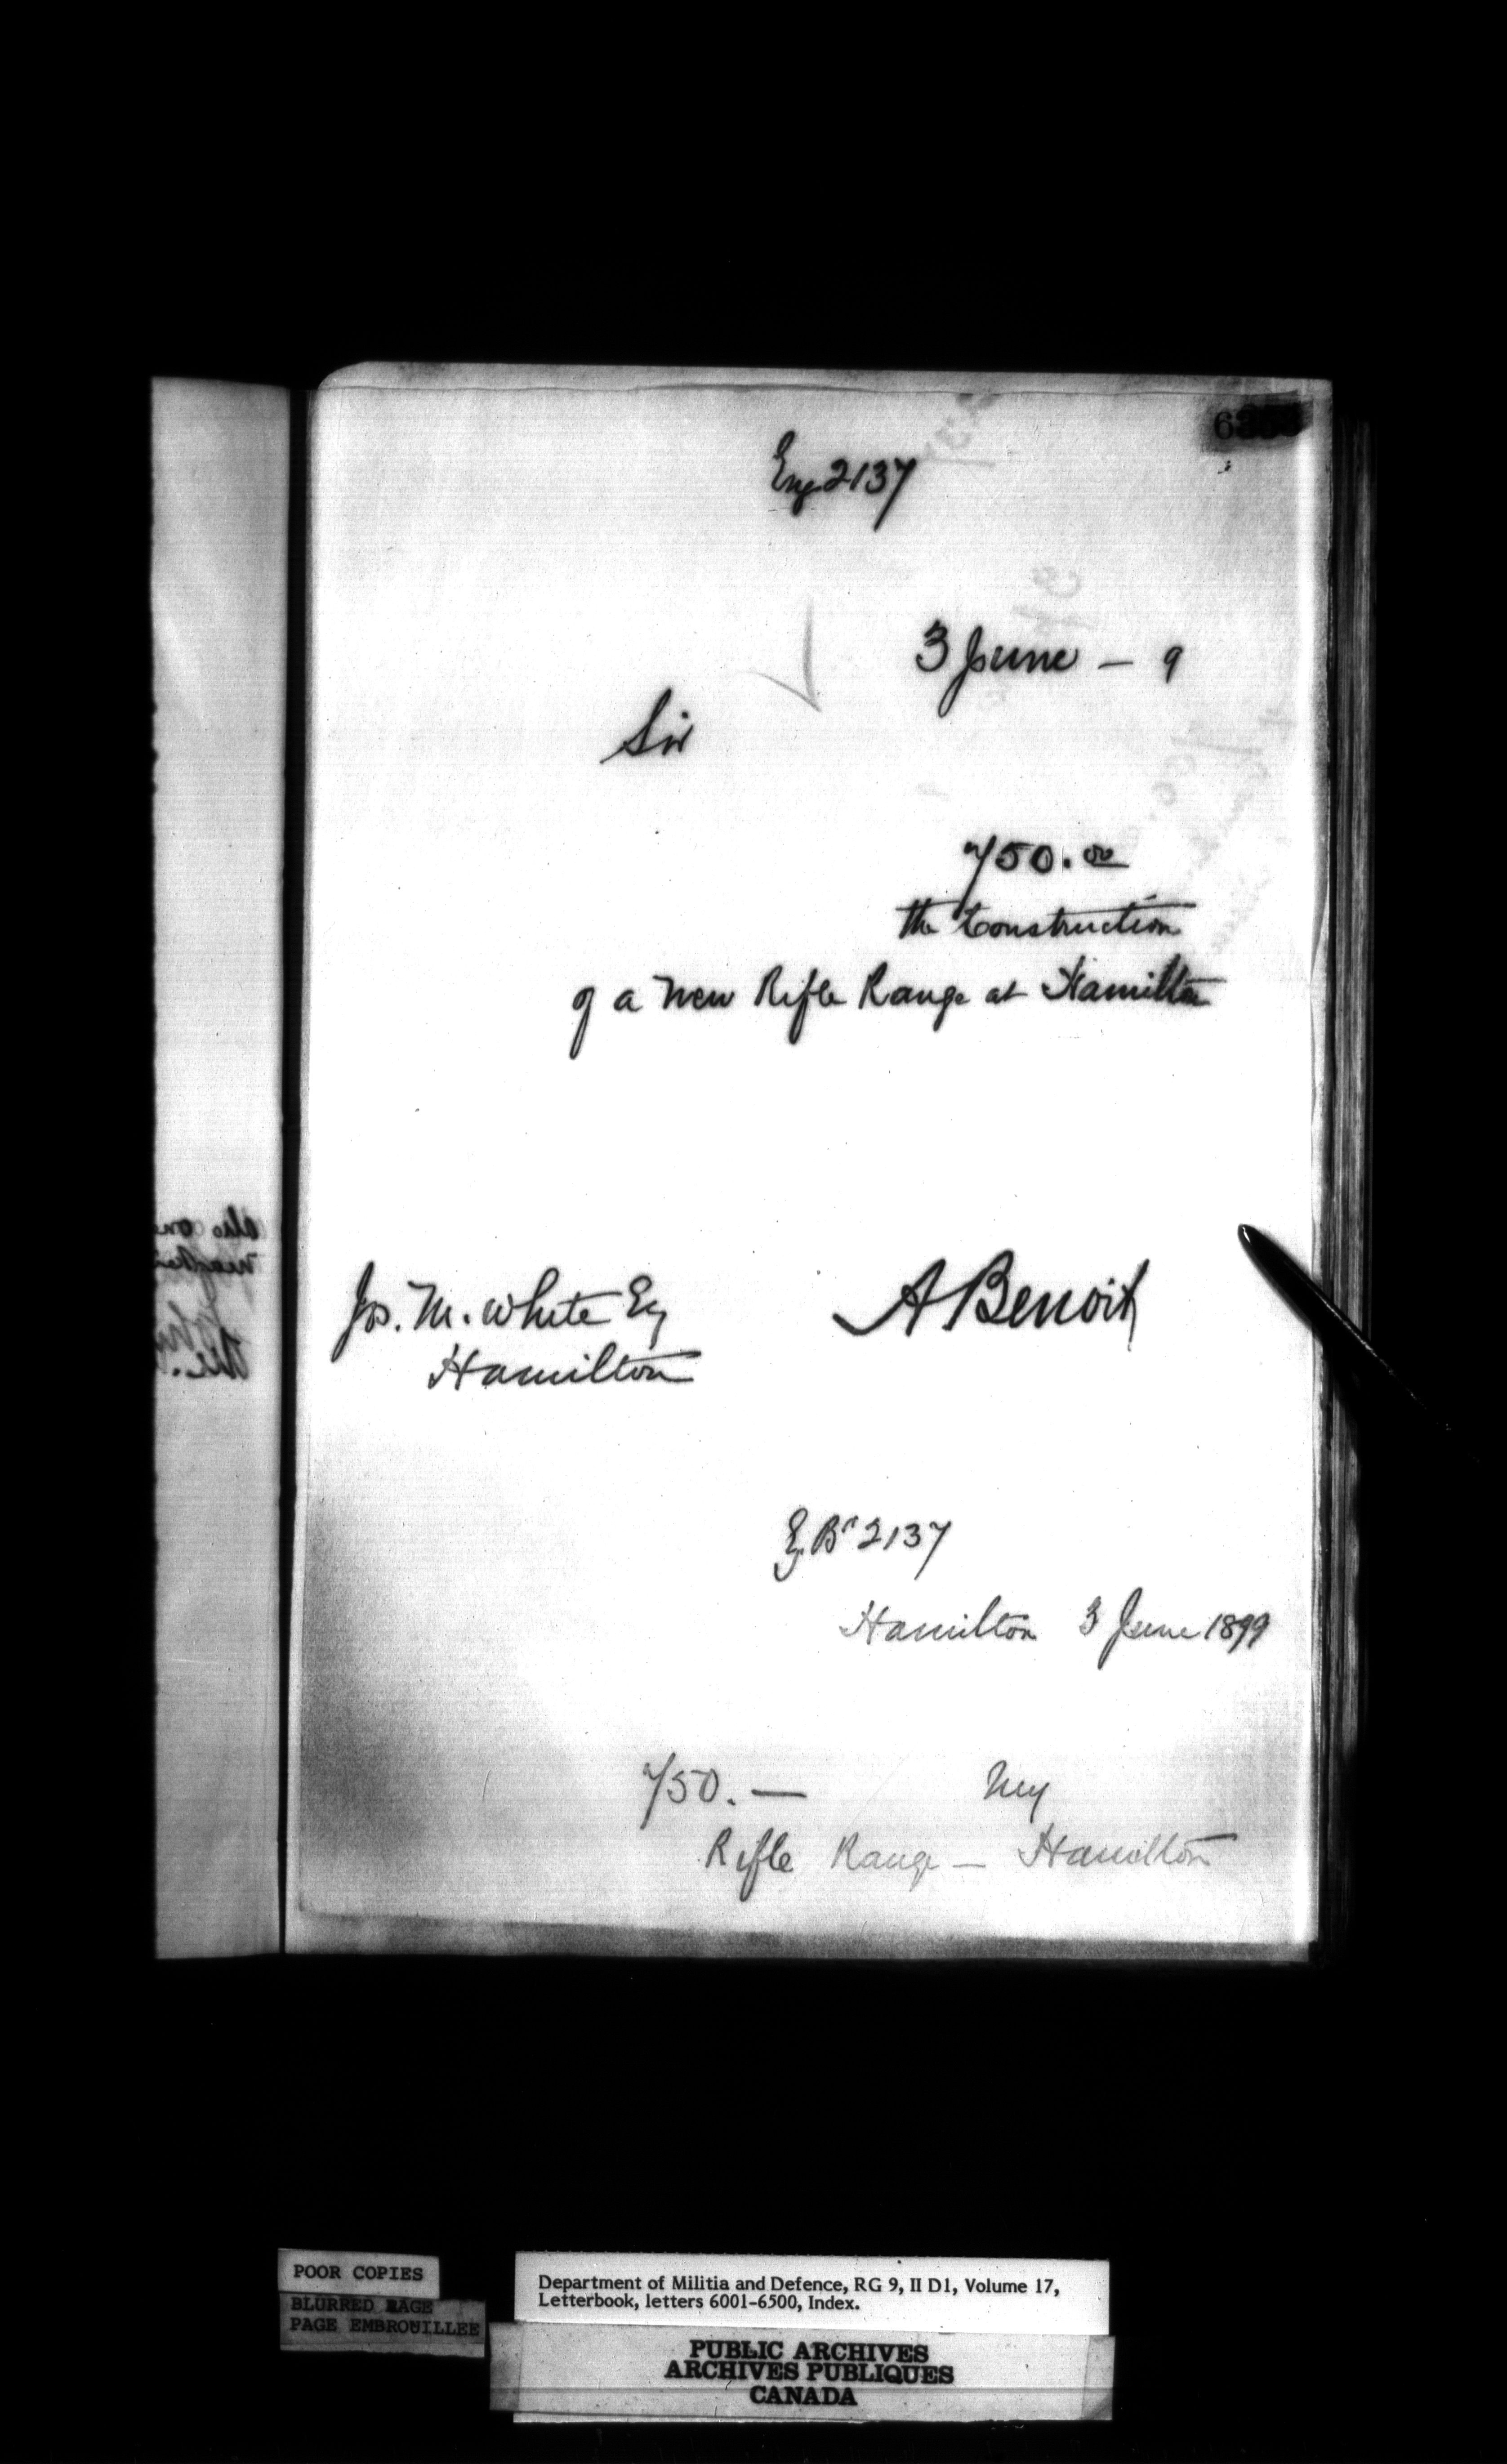 Eng 2137
3 June – 9
Sir
750.00
the Construction
of a new Rifle Range at Hamilton
Jos. M. White Esq
Hamilton
A Benoit
E. Br 2137
Hamilton 3 June 1899
750. —
my
Rifle Range — Hamilton
POOR COPIES
BLURRED PAGE
PAGE EMBROUILLEE
Department of Militia and Defence, RG 9, II D1, Volume 17,
Letterbook, letters 6001-6500, Index.
PUBLIC ARCHIVES
ARCHIVES PUBLIQUES
CANADA